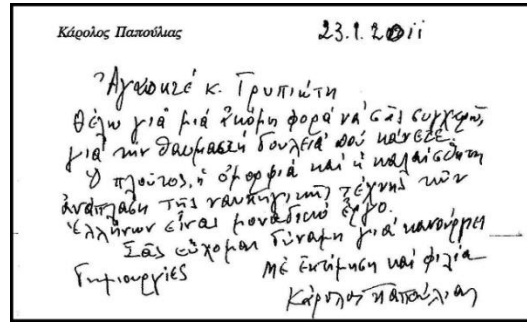 Κάρολος Παπούλιας
23.1.2011
Ἀγαπητέ κ. Γρυπιώτη
Θέλω γιά μιά ἀκόμη φορά νά σᾶς συγχαρῶ,
γιά τήν θαυμαστή δουλειά πού κάνετε.
Ὁ πλοῦτος, ἡ ὀμορφιά καί ἡ καλαίσθητη
ἀνάπλαση τῆς ναυπηγικῆς τέχνης τῶν
Ἑλλήνων εἶναι μοναδικό ἔργο.
Σᾶς εὔχομαι δύναμη γιά καινούργιες
δημιουργίες
Μέ ἐκτίμηση καί φιλία
Κάρολος Παπούλιας